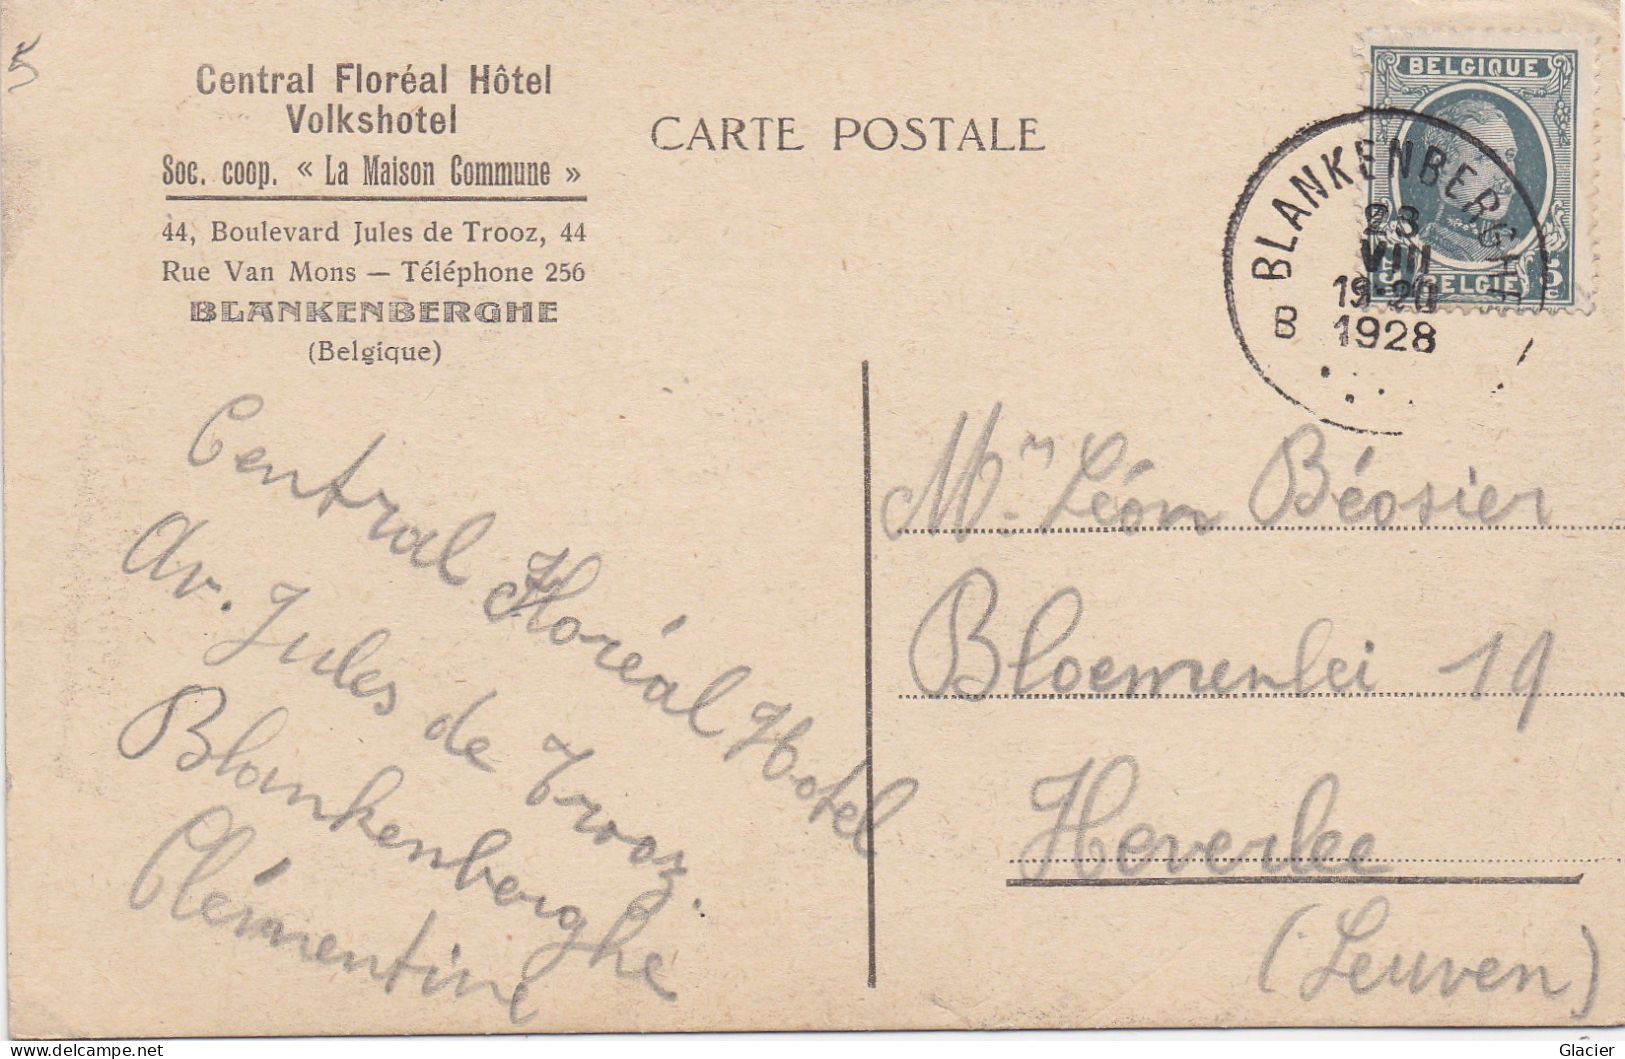 5
Central Floréal Hôtel
Volkshotel
Soc. coop. « La Maison Commune »
44, Boulevard Jules de Trooz, 44
Rue Van Mons — Téléphone 256
BLANKENBERGHE
(Belgique)
CARTE POSTALE
BELGIQUE
5c BELGIË 5c
BLANKENBERGHE
23
VIII
19-20
1928
B
Central Floréal Hotel
Av. Jules de Trooz.
Blankenberghe
Clémentine
Mr. Léon Béosier
Bloemenlei 19
Heverlee
(Leuven)
Glacier